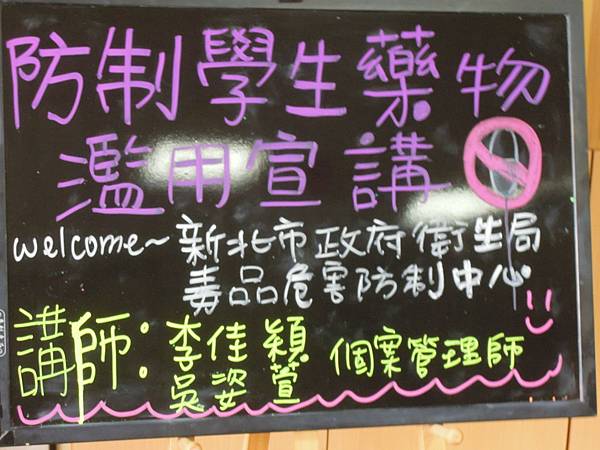 防制學生藥物
濫用宣講
welcome~新北市政府衛生局
毒品危害防制中心
講師:李佳穎 個案管理師
吳姿萱